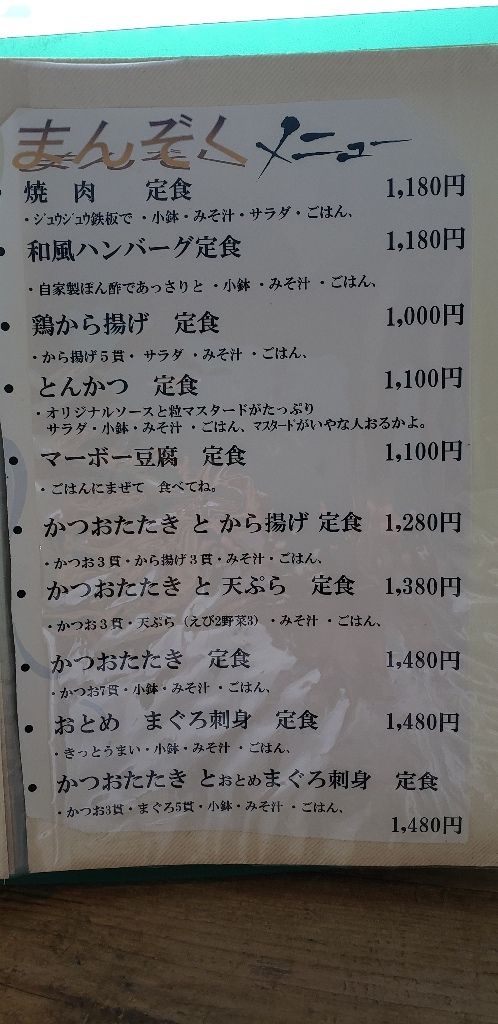 まんぞくメニュー
焼　肉　　定食　1,180円
・ジュウジュウ鉄板で ・小鉢・みそ汁・サラダ・ごはん、
和風ハンバーグ定食　1,180円
・自家製ぽん酢であっさりと ・小鉢 ・みそ汁 ・ごはん、
鶏から揚げ　定食　1,000円
・から揚げ５貫・ サラダ ・みそ汁 ・ごはん、
とんかつ　定食　1,100円
・オリジナルソースと粒マスタードがたっぷり
サラダ・小鉢・みそ汁 ・ごはん、マスタードがいやな人おるかよ。
マーボー豆腐　定食　1,100円
・ごはんにまぜて　食べてね。
かつおたたき と から揚げ 定食　1,280円
・かつお３貫・から揚げ３貫・みそ汁・ごはん、
かつおたたき と 天ぷら　定食　1,380円
・かつお３貫・天ぷら（えび2野菜3）・みそ汁 ・ごはん、
かつおたたき　定食　1,480円
・かつお7貫・小鉢・みそ汁 ・ごはん、
おとめ　まぐろ刺身　定食　1,480円
・きっとうまい・小鉢・みそ汁 ・ごはん、
かつおたたき とおとめまぐろ刺身　定食
・かつお3貫・まぐろ5貫・小鉢・みそ汁 ・ごはん、
1,480円